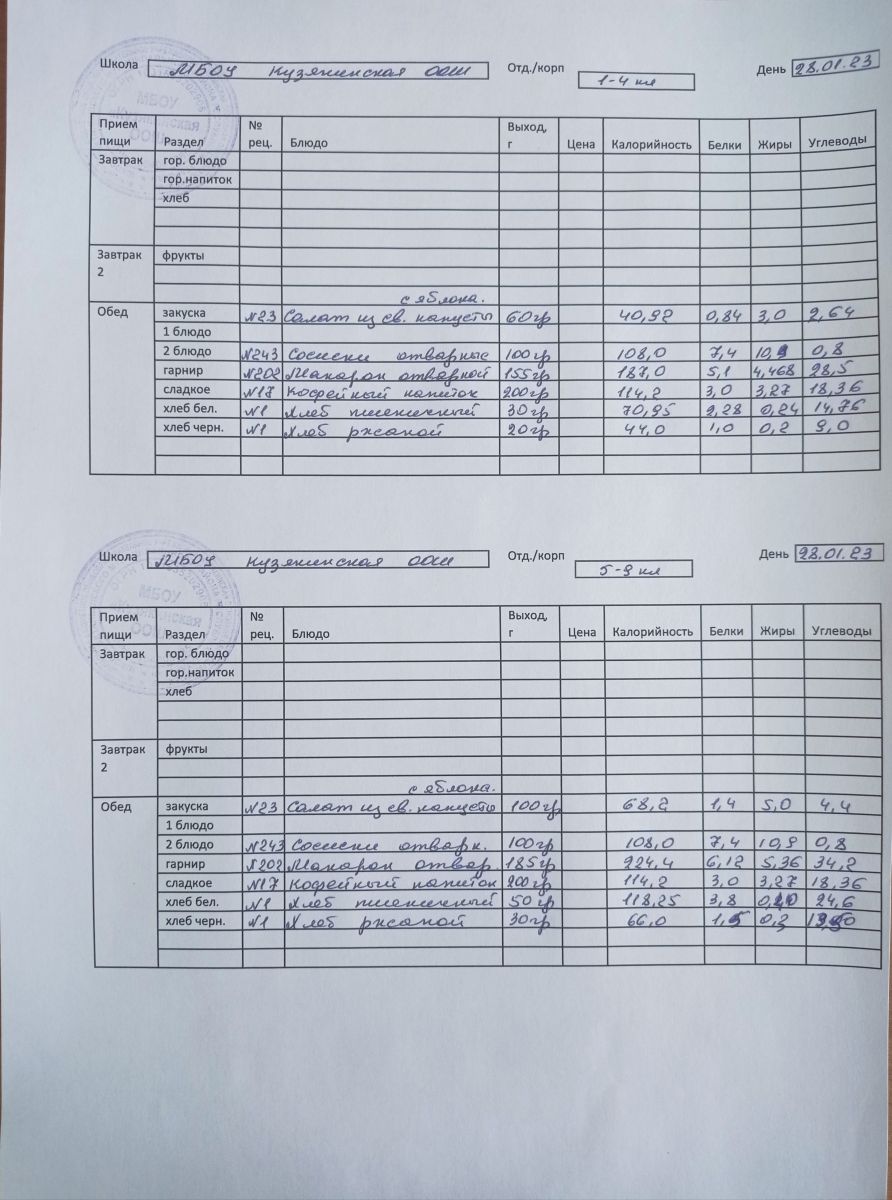 Школа МБОУ Кузякинская ООШ Отд./корп 1-4 кл День 28.01.23
Прием пищи Раздел № рец. Блюдо Выход, г Цена Калорийность Белки Жиры Углеводы
Завтрак гор. блюдо
гор.напиток
хлеб
Завтрак 2 фрукты
с яблока.
Обед закуска №23 Салат из св. капусты 60гр 40,92 0,84 3,0 2,64
1 блюдо
2 блюдо №243 Сосиски отварные 100гр 108,0 7,4 10,9 0,8
гарнир №202 Макарон отварной 155гр 187,0 5,1 4,468 28,5
сладкое №17 Кофейный напиток 200гр 114,2 3,0 3,27 18,36
хлеб бел. №1 Хлеб пшеничный 30гр 70,95 2,28 0,24 14,76
хлеб черн. №1 Хлеб ржаной 20гр 44,0 1,0 0,2 9,0
МБОУ
Школа МБОУ Кузякинская ООШ Отд./корп 5-9 кл День 28.01.23
Прием пищи Раздел № рец. Блюдо Выход, г Цена Калорийность Белки Жиры Углеводы
Завтрак гор. блюдо
гор.напиток
хлеб
Завтрак 2 фрукты
с яблока.
Обед закуска №23 Салат из св. капусты 100гр 68,2 1,4 5,0 4,4
1 блюдо
2 блюдо №243 Сосиски отварн. 100гр 108,0 7,4 10,9 0,8
гарнир №202 Макарон отвар 185гр 224,4 6,12 5,36 34,2
сладкое №17 Кофейный напиток 200гр 114,2 3,0 3,27 18,36
хлеб бел. №1 Хлеб пшеничный 50гр 118,25 3,8 24,6
хлеб черн. №1 Хлеб ржаной 30гр 66,0 1,5 0,3
МБОУ